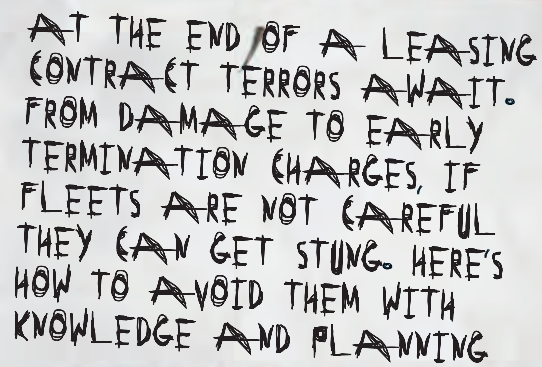 AT THE END OF A LEASING
CONTRACT TERRORS AWAIT.
FROM DAMAGE TO EARLY
TERMINATION CHARGES, IF
FLEETS ARE NOT CAREFUL
THEY CAN GET STUNG. HERE'S
HOW TO AVOID THEM WITH
KNOWLEDGE AND PLANNING